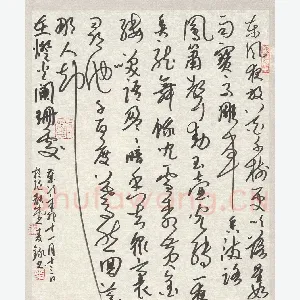 东风夜放花千树更吹落星如
雨宝马雕车香满路
凤箫声动玉壶光转一
夜鱼龙舞蛾儿雪柳黄金
缕笑语盈盈暗香去众里
寻他千百度蓦然回首
那人却
在灯火阑珊处
十一月十三日